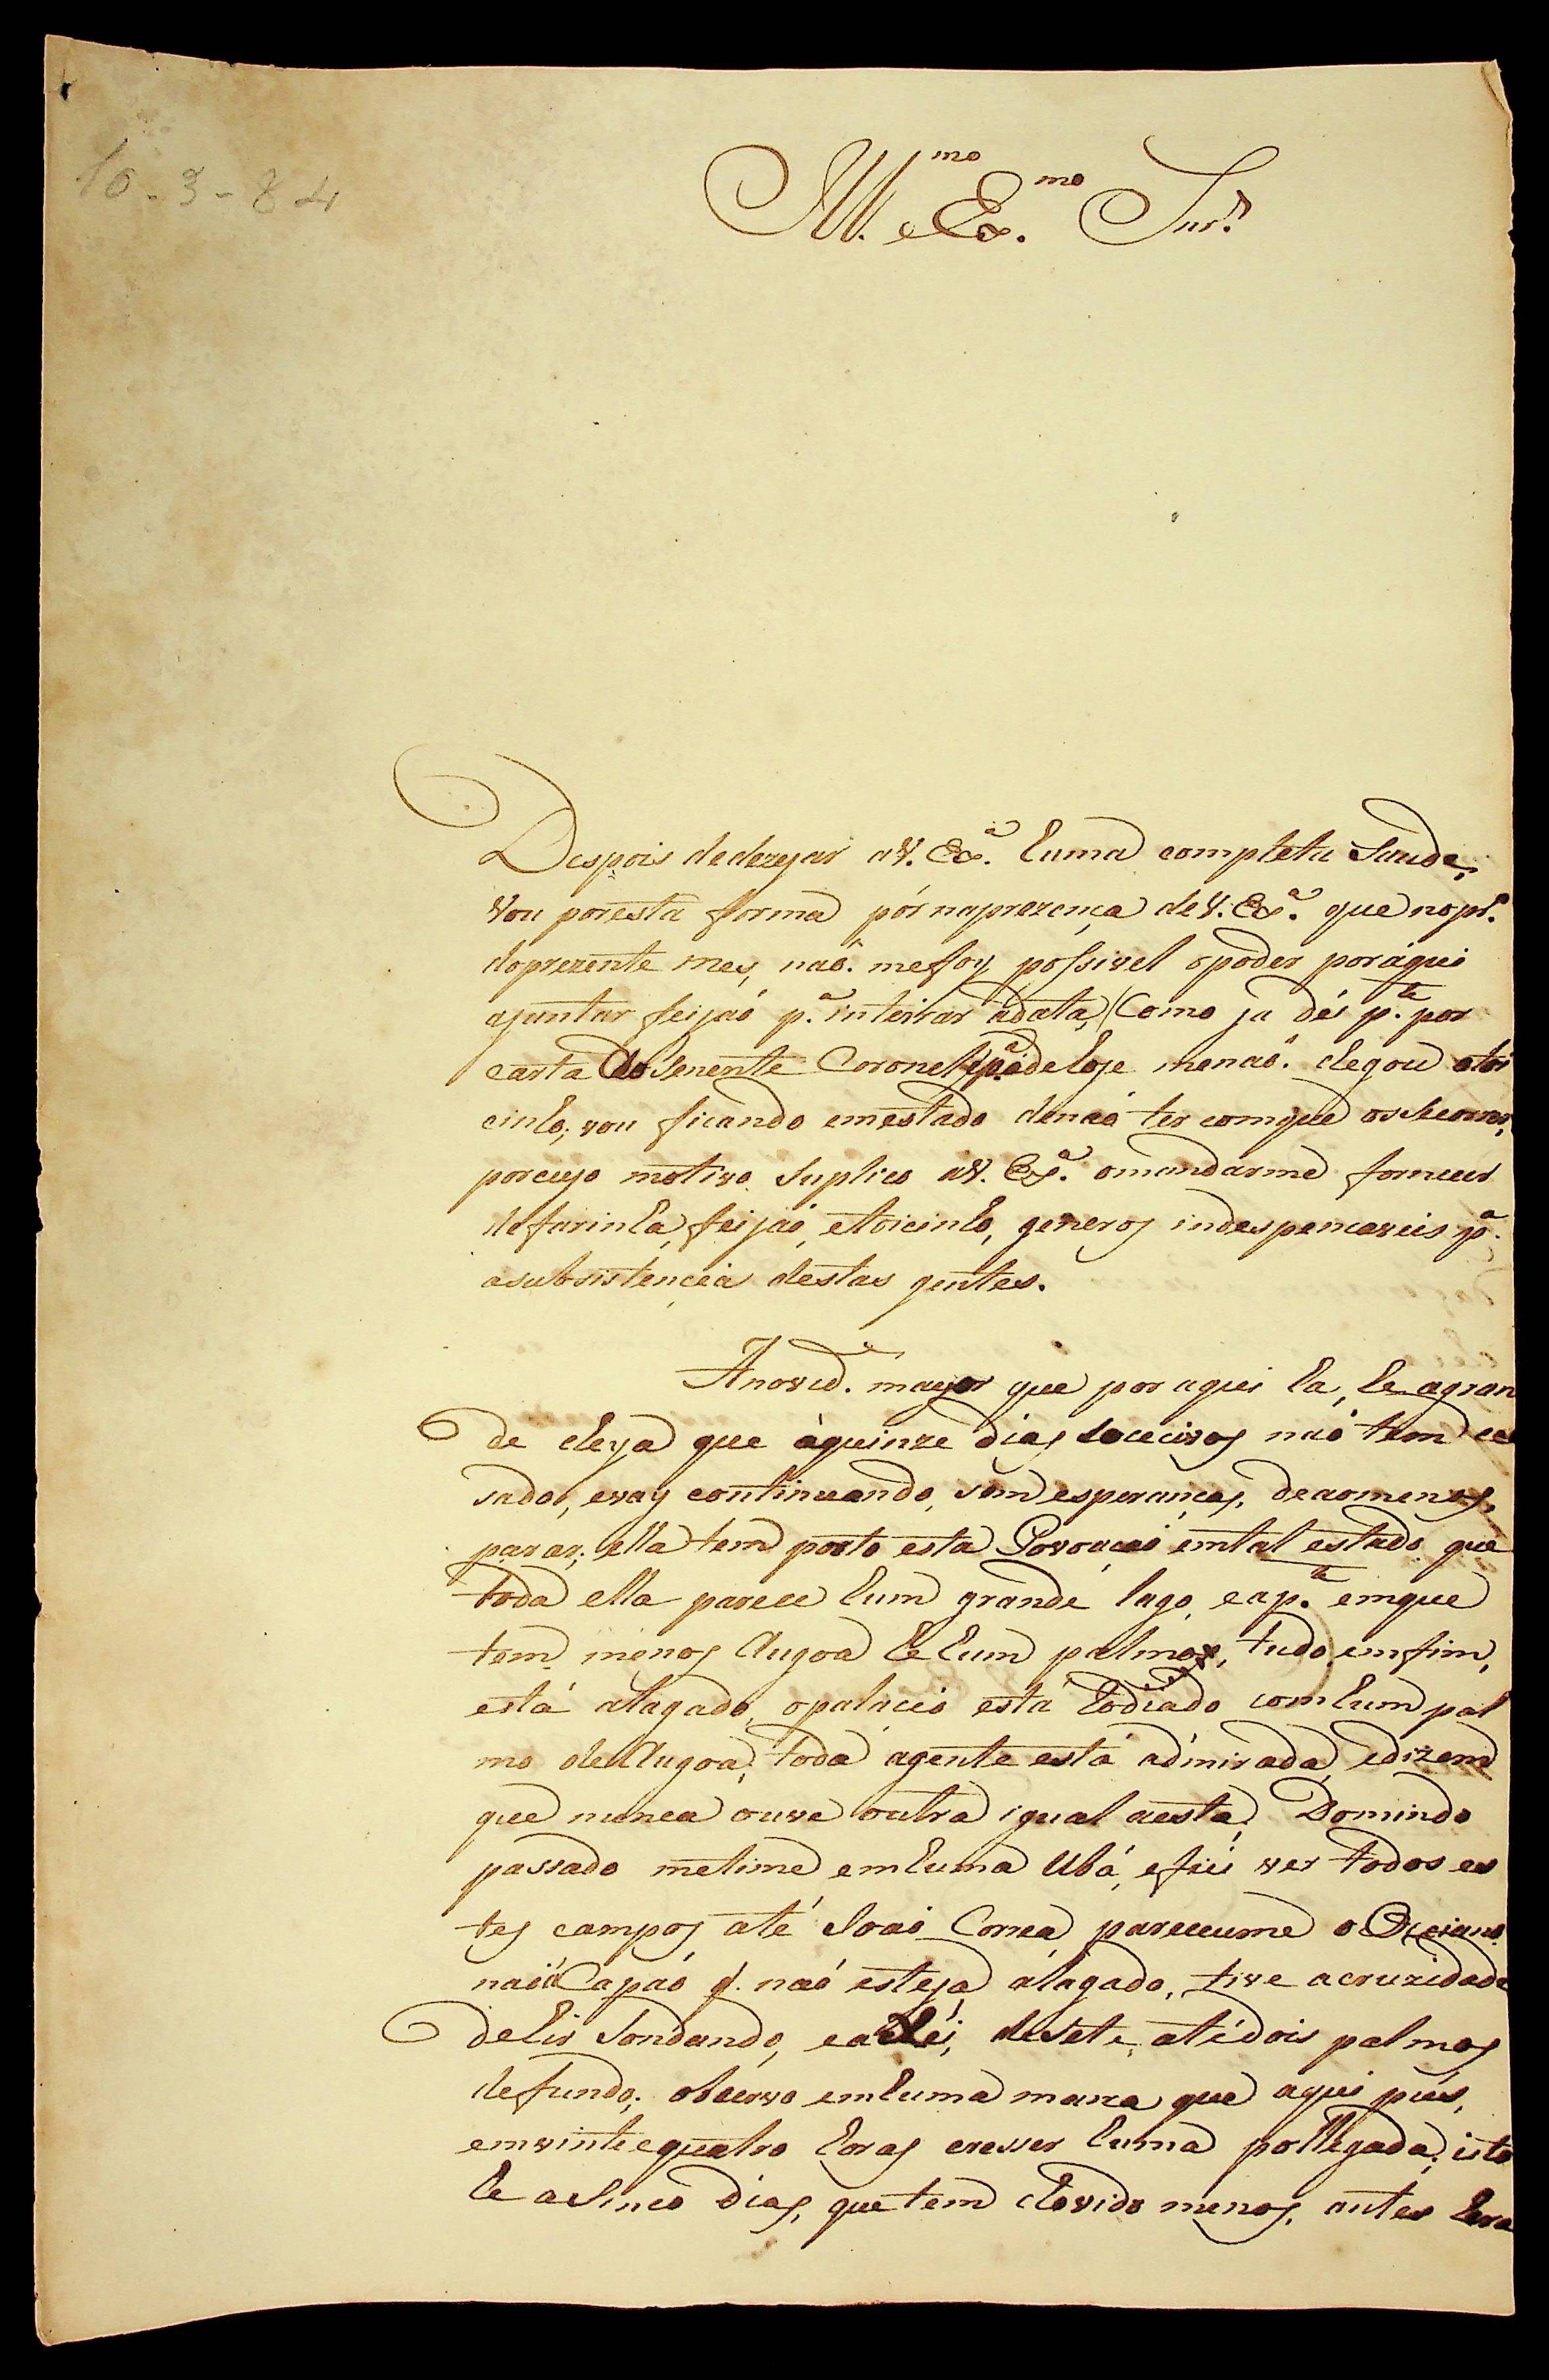 10-3-84
Ill.mo e Ex.mo Snr.
Despois dedezejar aV. Ex.a huma completa Saude,
vou poresta forma pôr naprezença deV. Ex.a que nopr.o
doprezente mes, naõ mefoy possivel opoder poráqui
ajuntar feijaõ p.a inteirar adata, (Como ja déi p.te por
carta do Tenente Coronel) hoje menaõ chegou otoi
cinho; vou ficando emestado denaõ ter comque ossecorrer,
porcujo motivo Suplico aV. Ex.a omandarme fornecer
defarinha, feijaõ, etoicinho, generos indespencaveis p.a
asubsistencia destas gentes.
Anovid.e mayor que por aqui ha, he agran
de cheya que áquinze dias sucecivos naõ tem ce
sado, evay continuando, sem esperanças, deaomenos,
parar; ella tem posto esta Povoaçaõ emtal estado que
toda ella parece hum grande lago, eap.te emque
tem menos Augoa he hum palmo, tudo emfim,
está alagado, opalacio está rodiado comhum pal
mo deAugoa, toda agente está admirada, edizem
que nunca ouve outra igual aesta, Domindo
passado metime emhuma Ubá, efui ver todos es
tes campos até Joaõ Correa, pareceume o Occiano
naõ á Capaõ q. naõ esteja alagado, tive acruzidade
dehir Sondando, eachéi, desete, atédois palmos
defundo; observo emhuma marca que aqui pús,
emvinte equatro horas cresser huma pollegada; isto
he aSinco dias, que tem chovido menos, antes hera